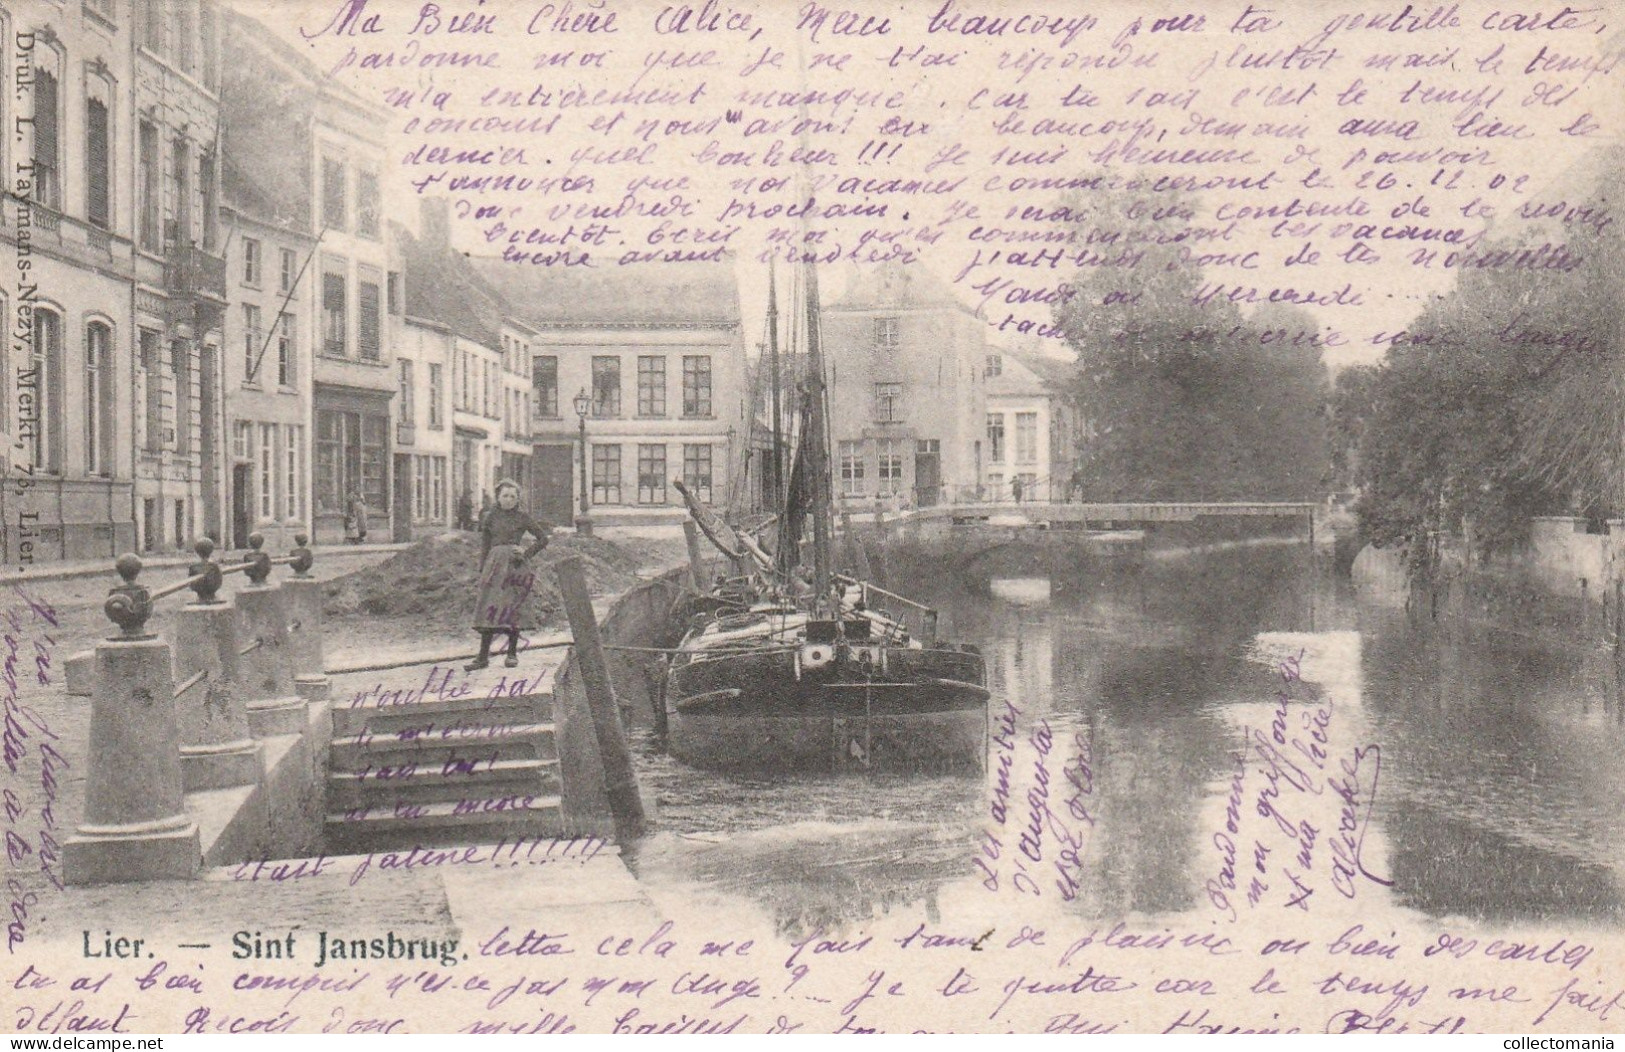 Ma Bien Chère Alice, Merci beaucoup pour ta gentille carte,
pardonne moi que je ne t'ai répondu plustôt mais le temps
m'a entièrement manqué. Car tu sais c'est le temps des
concours et nous avons eu beaucoup, demain aura lieu le
dernier. quel bonheur!!! Je suis heureuse de pouvoir
t'annoncer que nos vacances commenceront le 26.12.02
donc vendredi prochain. Je serai bien contente de te revoir
bientôt. Ecris moi qu'en commenceront tes vacances
encore avant Vendredi j'attends donc de tes nouvelles
Mardi ou Mercredi ....
tache de m'écrire une longue
lettre cela me fais tant de plaisir ou bien des cartes
tu as bien compris n'est-ce pas mon Ange? .... Je te quitte car le temps me fait
défaut Reçois donc mille baisers de ton amie qui t'aime
n'oublie pas
de m'écrire
sais-tu!
et en encore
était saline!!!!!!!
J'ai plusieurs
nouvelles à te dire
Les amitiés
d'Augusta
et de Flore
Pardonne
mon griffonage
et ma chère
Druk. L. Taymans-Nezy, Merkt, 73, Lier.
Lier. — Sint Jansbrug.
collectomania.com